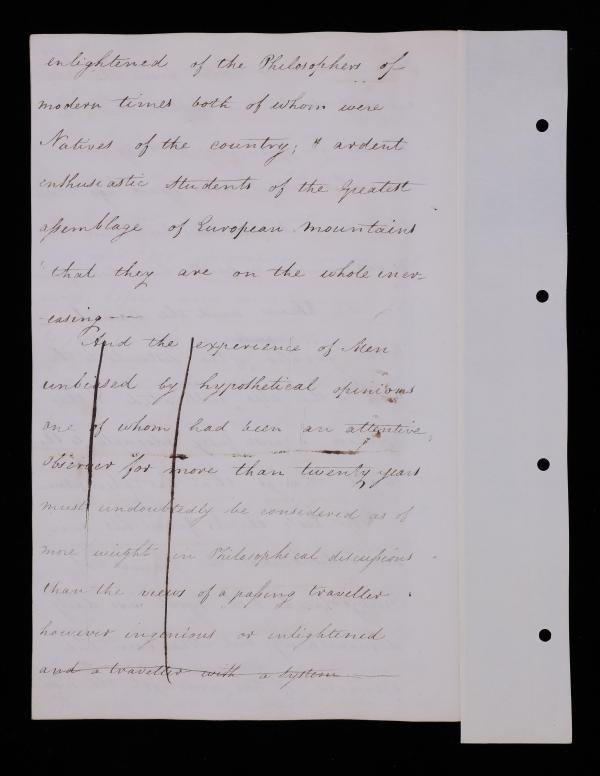 enlightened of the Philosophers of
modern times both of whom were
Natives of the country; & ardent
enthusiastic students of the greatest
assemblage of European mountains
that they are on the whole incr-
-easing —
And the experience of Men
unbiased by hypothetical opinions
one of whom had been an attentive
observer for more than twenty years
must undoubtedly be considered as of
more weight in Philosophical discussions
than the views of a passing traveller
however ingenious or enlightened
and a traveller with a System